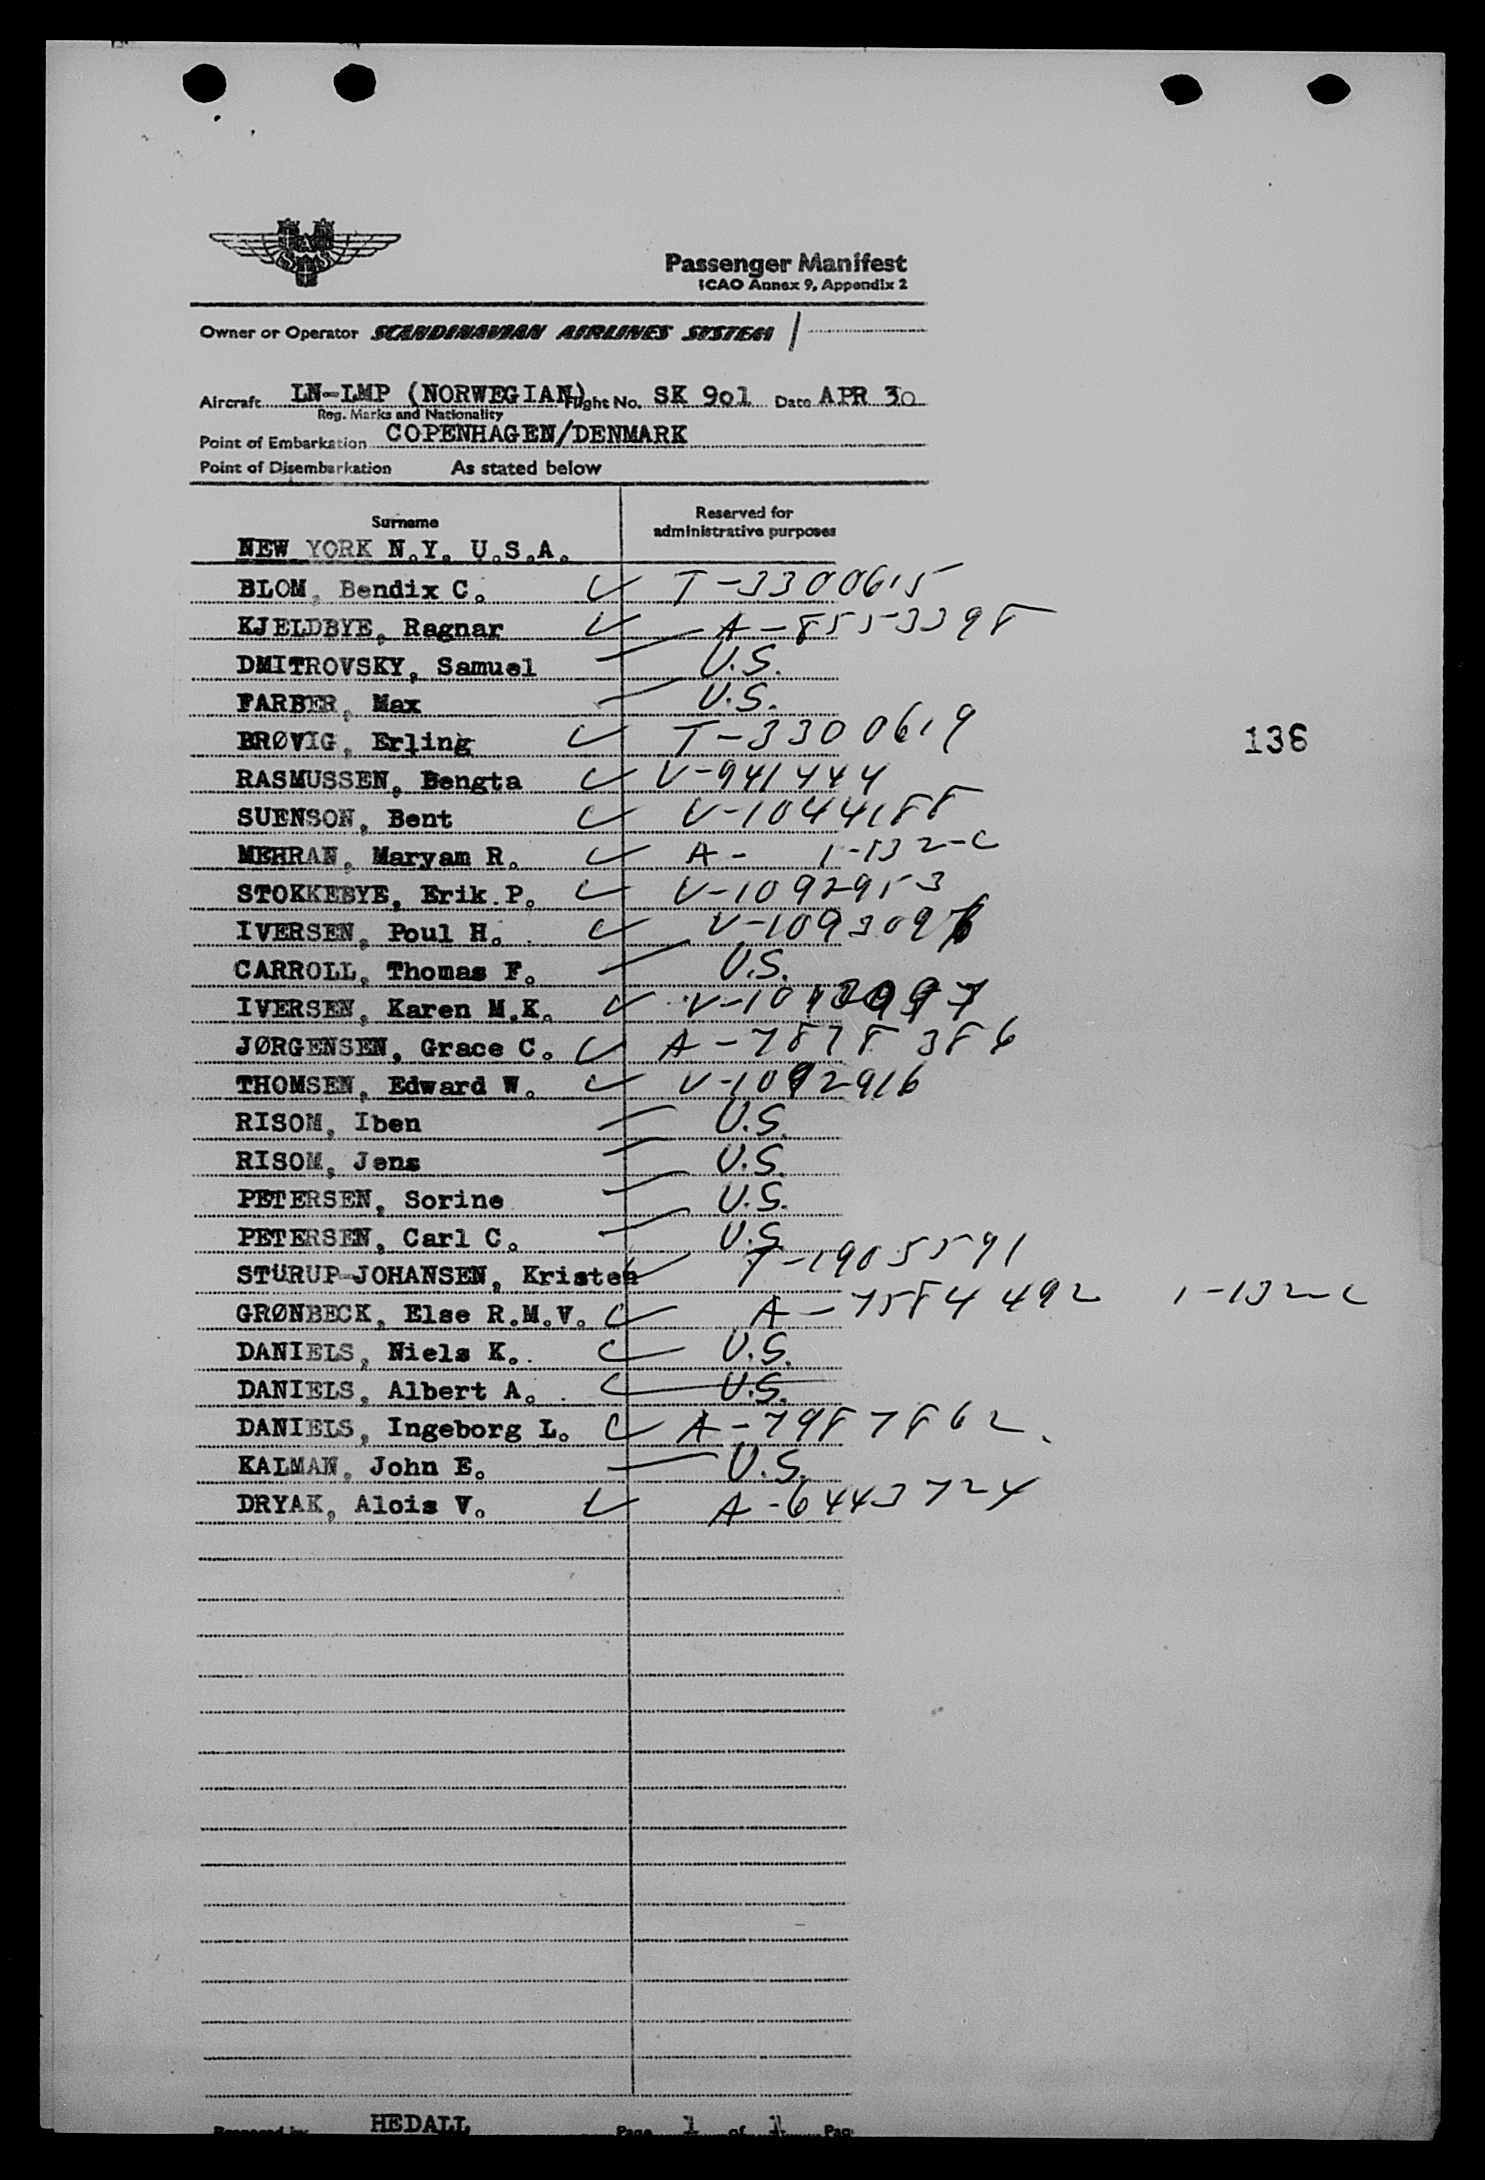 SAS
Passenger Manifest
ICAO Annex 9, Appendix 2
Owner or Operator SCANDINAVIAN AIRLINES SYSTEM /
Aircraft LN-LMP (NORWEGIAN) Flight No. SK 901 Date APR 30
Reg. Marks and Nationality
Point of Embarkation COPENHAGEN/DENMARK
Point of Disembarkation As stated below
Surname Reserved for administrative purposes
NEW YORK N.Y. U.S.A.
BLOM, Bendix C. ✓ T-3300615
KJELDBYE, Ragnar ✓ A-8553398
DMITROVSKY, Samuel — U.S.
FARBER, Max — U.S.
BRØVIG, Erling ✓ T-3300619
136
RASMUSSEN, Bengta ✓ V-941444
SUENSON, Bent ✓ V-1044188
MEHRAN, Maryam R. ✓ A- 1-132-C
STOKKEBYE, Erik P. ✓ V-1092953
IVERSEN, Poul H. ✓ V-1093096
CARROLL, Thomas F. — U.S.
IVERSEN, Karen M.K. ✓
JØRGENSEN, Grace C. ✓ A-7878386
THOMSEN, Edward W. ✓ V-1092916
RISOM, Iben — U.S.
RISOM, Jens — U.S.
PETERSEN, Sorine — U.S.
PETERSEN, Carl C. — U.S.
STURUP-JOHANSEN, Kristen ✓ T-1905591
GRØNBECK, Else R.M.V. ✓ A-7584492 1-132-C
DANIELS, Niels K. ✓ U.S.
DANIELS, Albert A. ✓ U.S.
DANIELS, Ingeborg L. ✓ A-7987862
KALMAN, John E. — U.S.
DRYAK, Alois V. ✓ A-6443724
Prepared by HEDALL Page 1 of 1 Pag